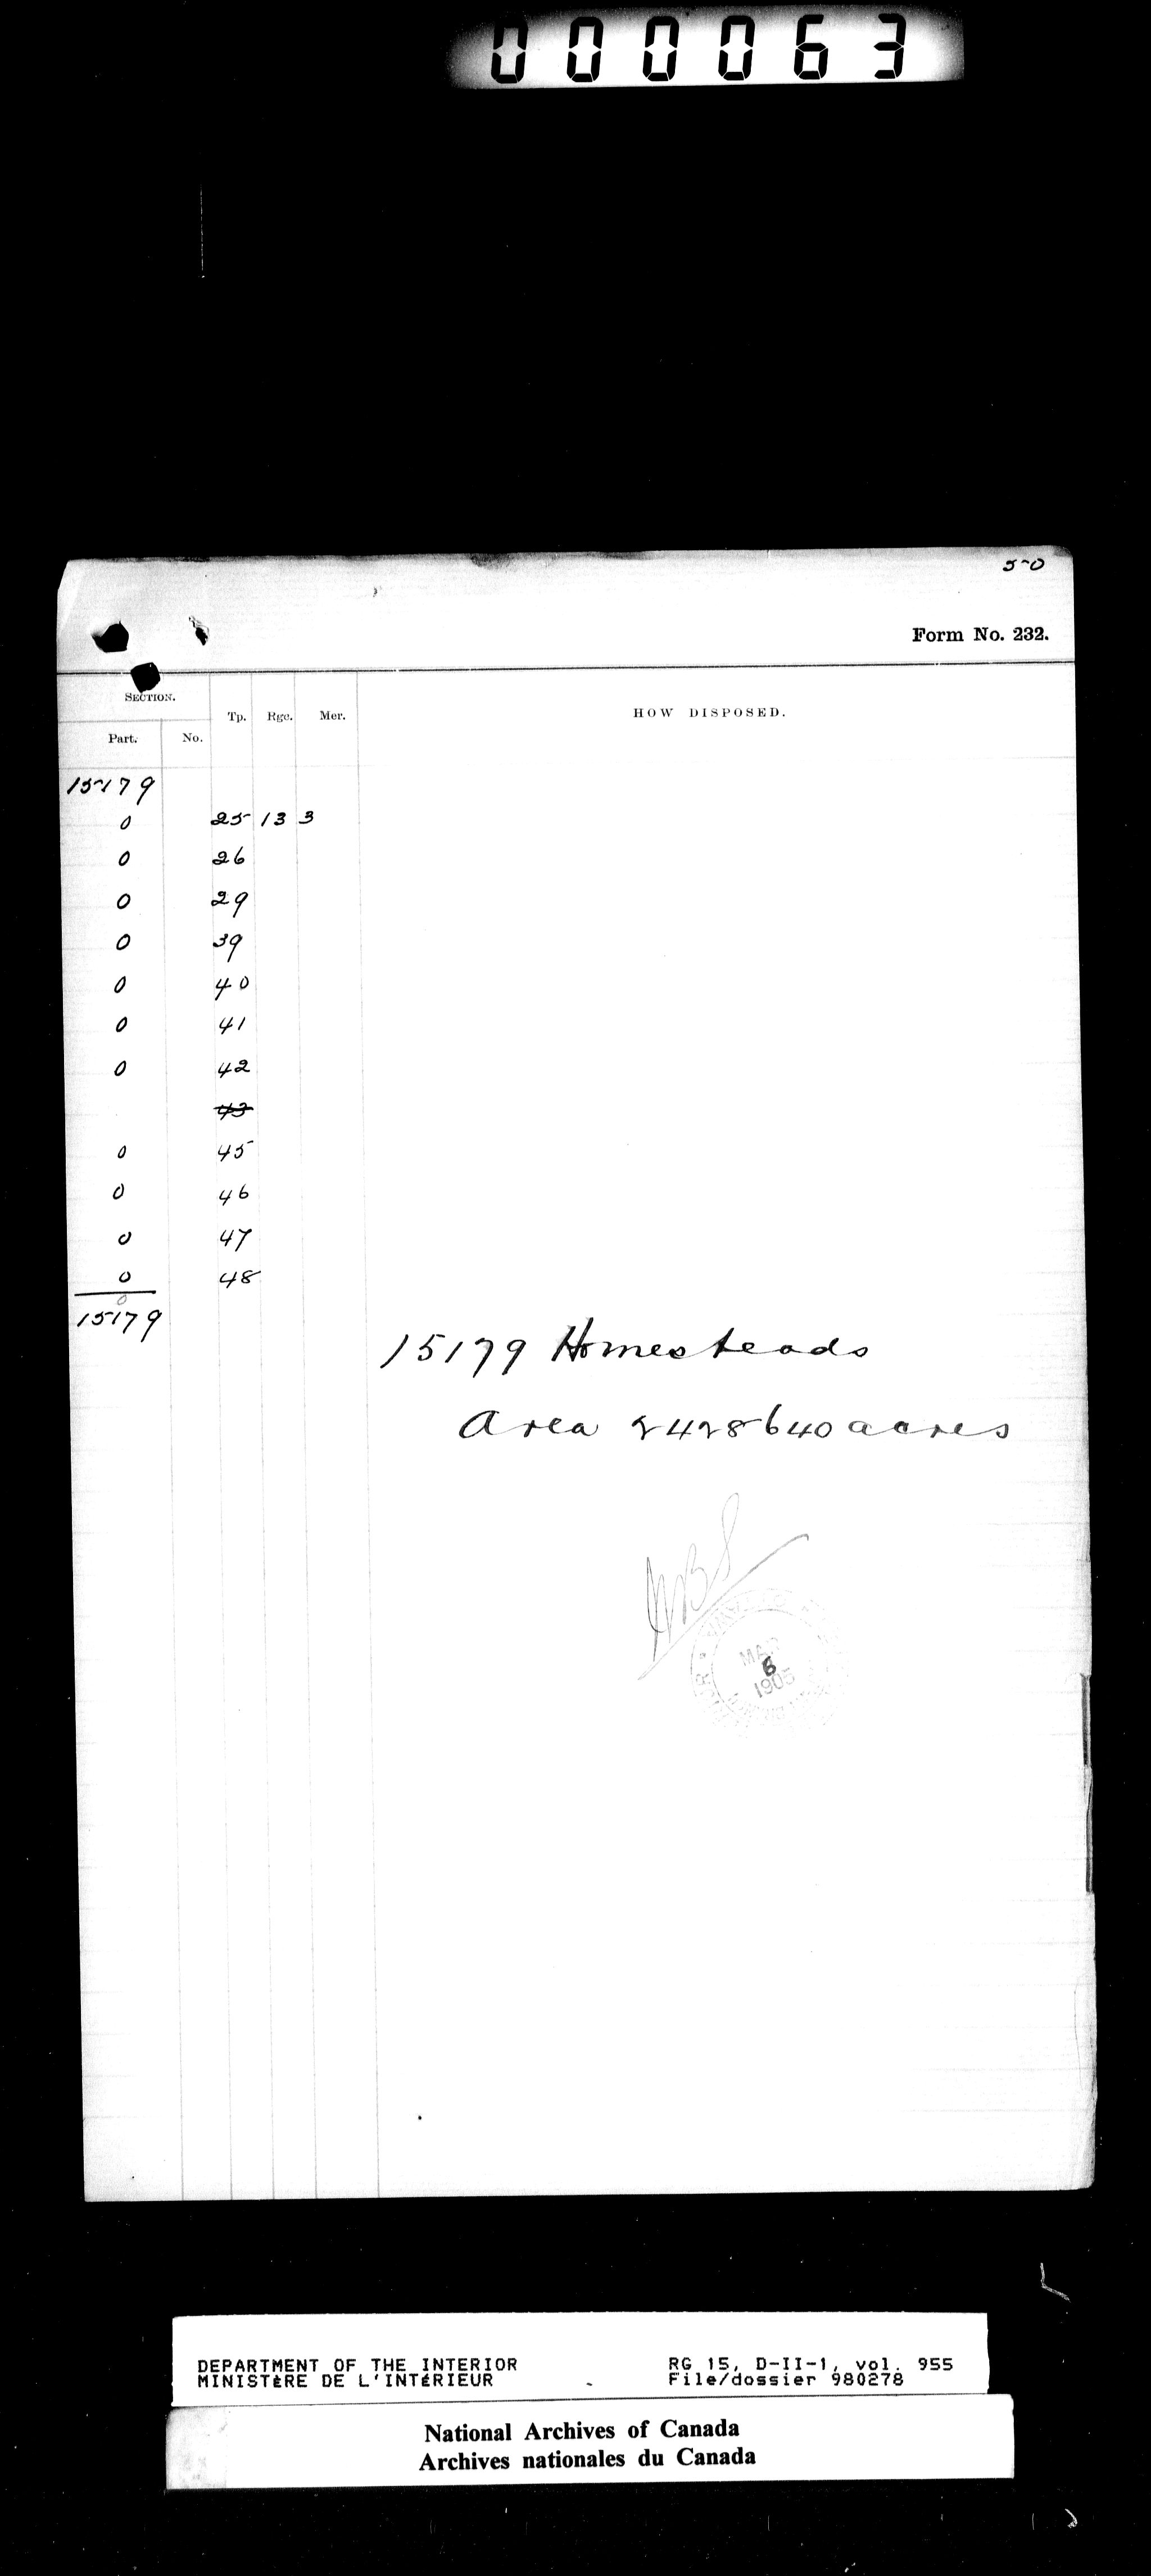 000063
50
Form No. 232.
SECTION.
Tp. Rge. Mer.
HOW DISPOSED.
Part. No.
15179
0 25 13 3
0 26
0 29
0 39
0 40
0 41
0 42
43
0 45
0 46
0 47
0 48
0
15179
15179 Homesteads
Area 2428640 acres
MAR
6
1905
DEPARTMENT OF THE INTERIOR
MINISTÈRE DE L'INTÉRIEUR
RG 15, D-II-1, vol. 955
File/dossier 980278
National Archives of Canada
Archives nationales du Canada